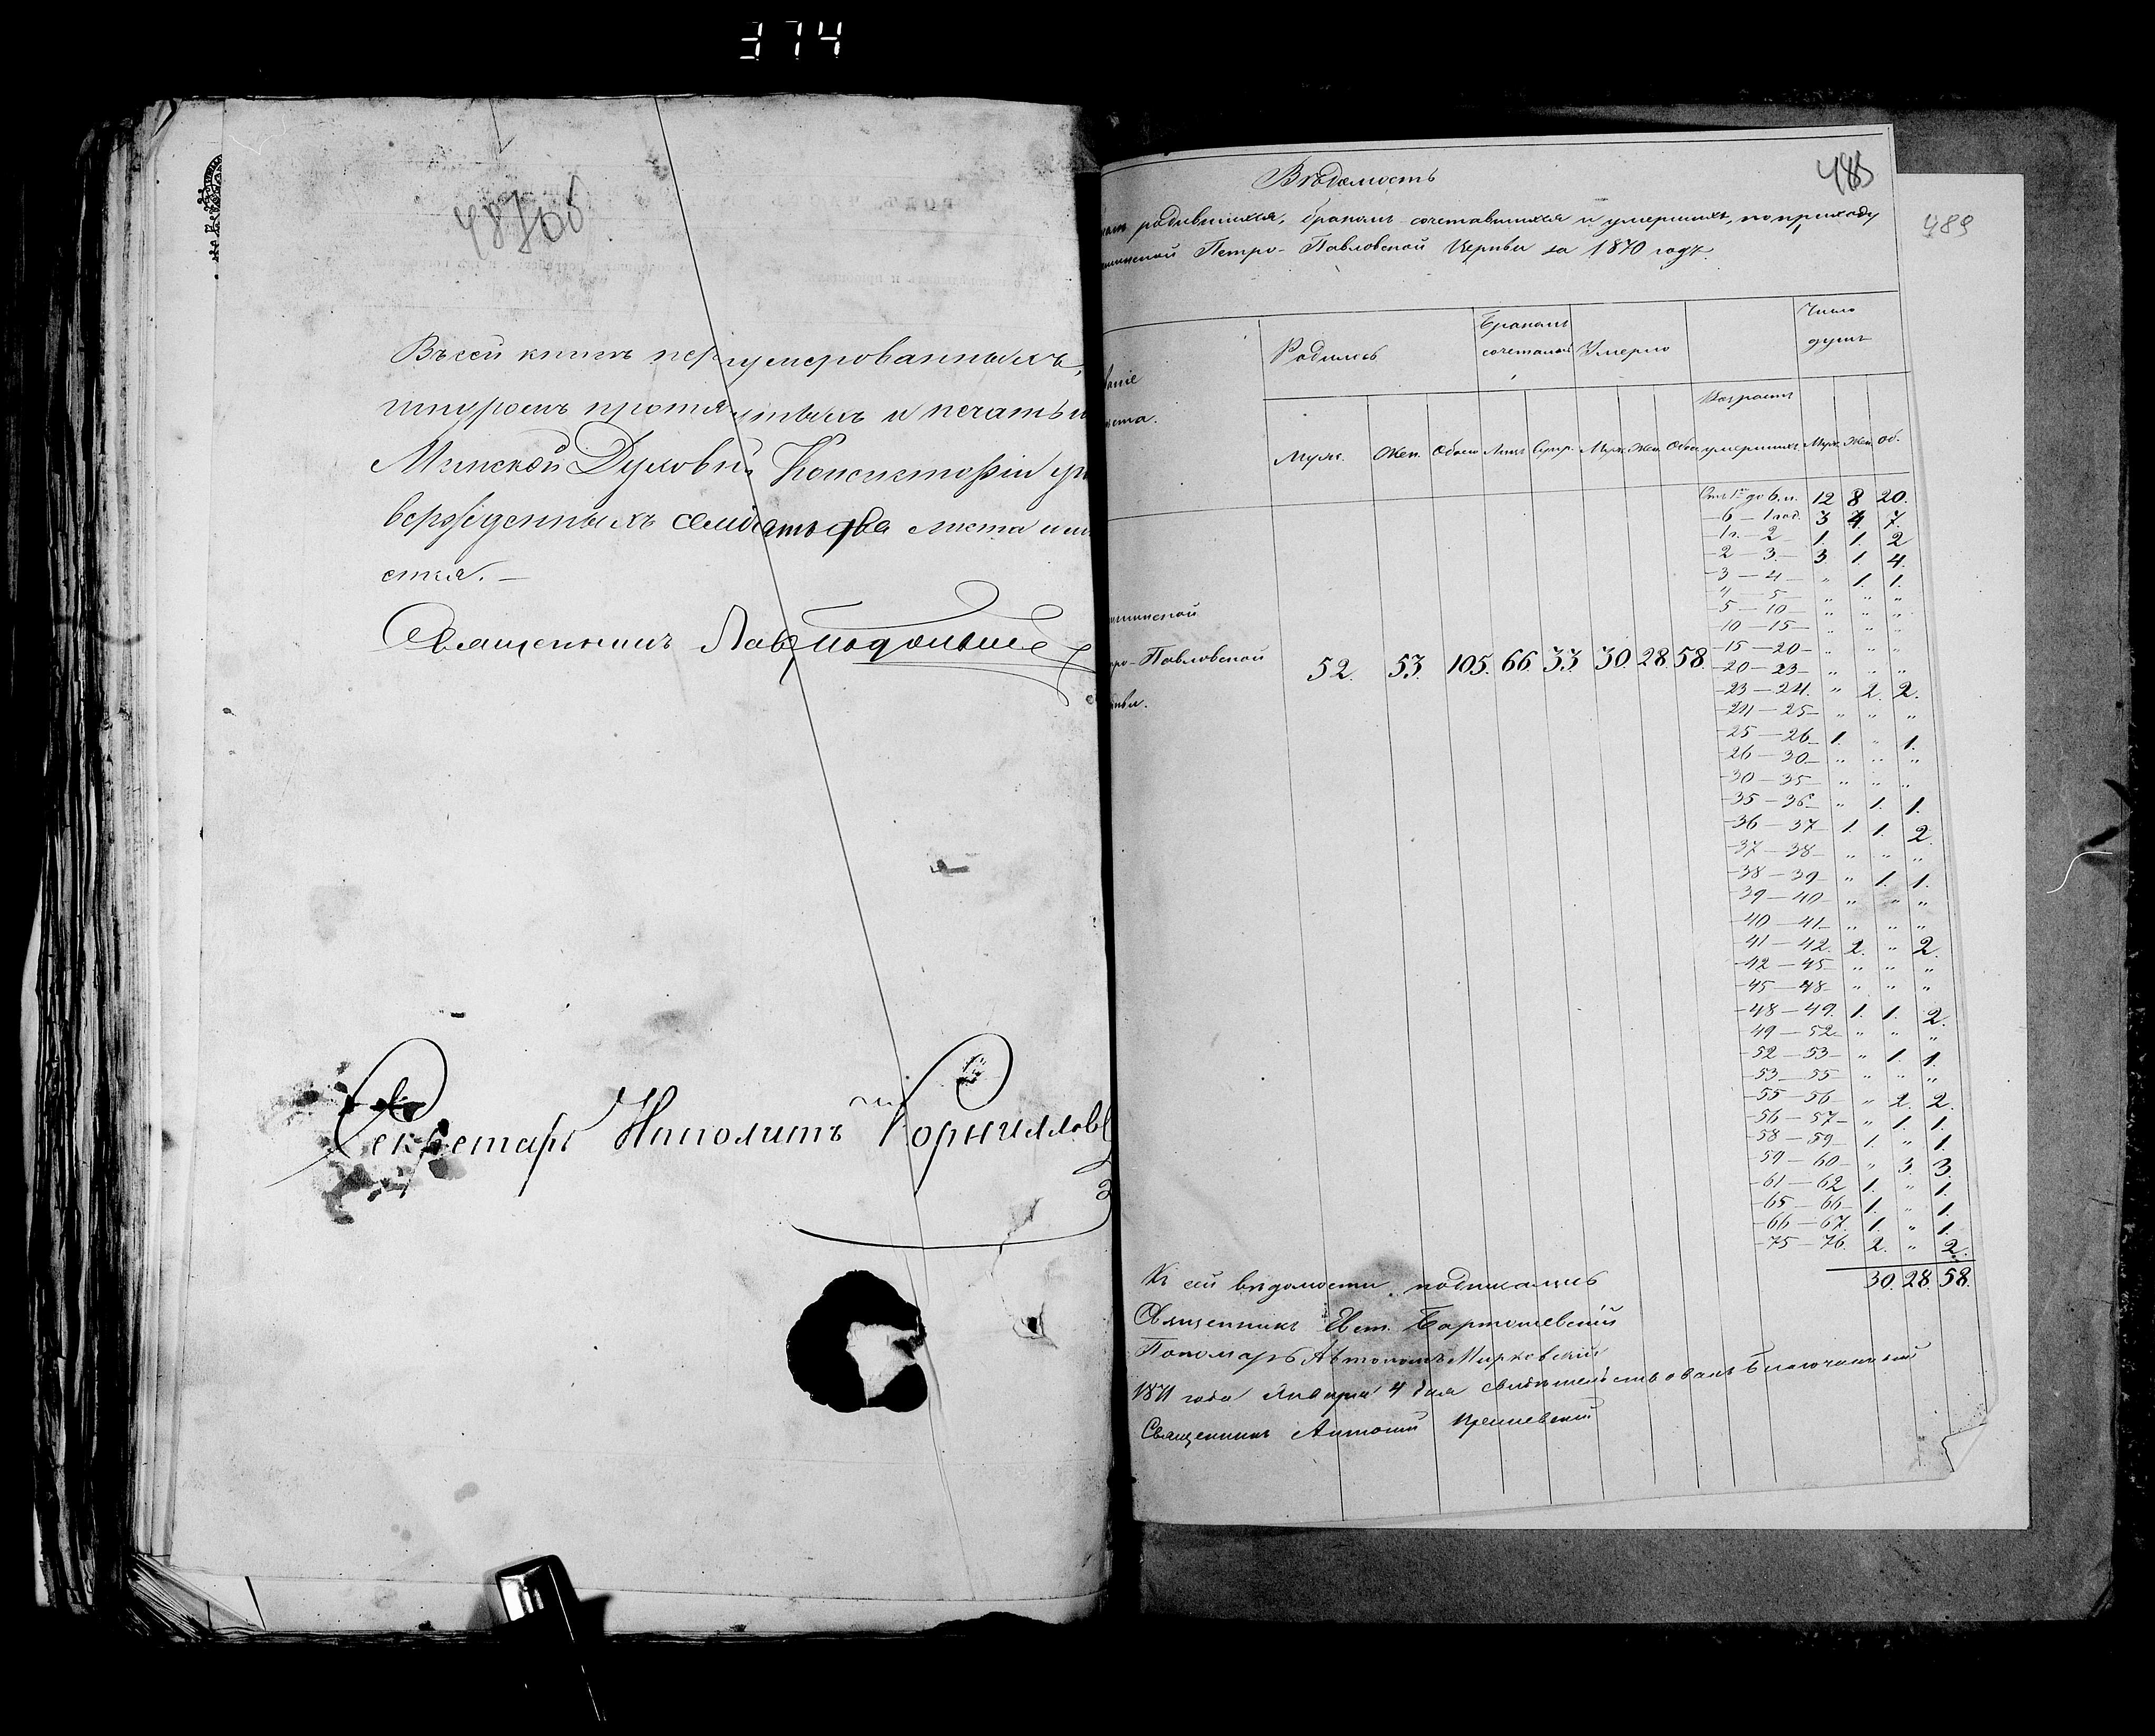 374
487 об
Въ сей книгѣ пернумерованныхъ,
шнуромъ протянутыхъ и печатью
Минской Духовной Консисторіи ут
вержденныхъ семдесять два листа име
ется. —
Священникъ
Секретарь Ипполитъ Корниллов
Вѣдомость
488
489
родившихся, бракомъ сочетавшихся и умершихъ, по приходу
Петро-Павловской Церкви за 1870 годъ.
Родилось
Бракомъ сочеталось
Умерло
Число душъ
Муж. Жен. Обоего Лицъ Супр. Муж. Жен. Обое
Возрастъ умершихъ Муж. Жен. Об.
-Павловской
52. 53. 105. 66. 33. 30. 28. 58.
Отъ 1го до 6. м. 12 8 20.
— 6 — 1 год. 3 4. 7.
— 1 г. — 2 — 1. 1. 2
— 2 — 3 — 3. 1. 4.
— 3 — 4 — " 1. 1.
4 — 5 — " " "
— 5 — 10 — " " "
10 — 15 — " " "
— 15 — 20 — " " "
— 20 — 23 — " " "
— 23 — 24. " 2. 2.
— 24 — 25 — " " "
— 25 — 26. 1. " 1.
— 26 — 30 — " " "
— 30 — 35 — " " "
— 35 — 36 — " 1. 1.
— 36 — 37 — 1. 1. 2.
— 37 — 38 — " " "
— 38 — 39 — " 1. 1.
39 — 40 — " " "
— 40 — 41 — " " "
— 41 — 42. 2. " 2.
— 42 — 45 — " " "
— 45 — 48 — " " "
— 48 — 49. 1. 1. 2.
49 — 52 — " " "
— 52 — 53 — " 1. 1.
— 53 — 55 — " " "
— 55 — 56 — " 2. 2.
— 56 — 57 — " 1. 1.
— 58 — 59 — 1. " 1.
— 59 — 60 — " 3. 3.
— 61 — 62 1. " 1.
— 65 — 66 — 1. " 1.
— 66 — 67. 1. " 1.
— 75 — 76. 2. " 2.
30. 28. 58.
Къ сей вѣдомости подписались
Священникъ Евст. Бартошевскій
Пономарь Автономъ Мирковскій
1871 года Января 4 дня свидѣтельствовалъ Благочинный
Священникъ Антоній